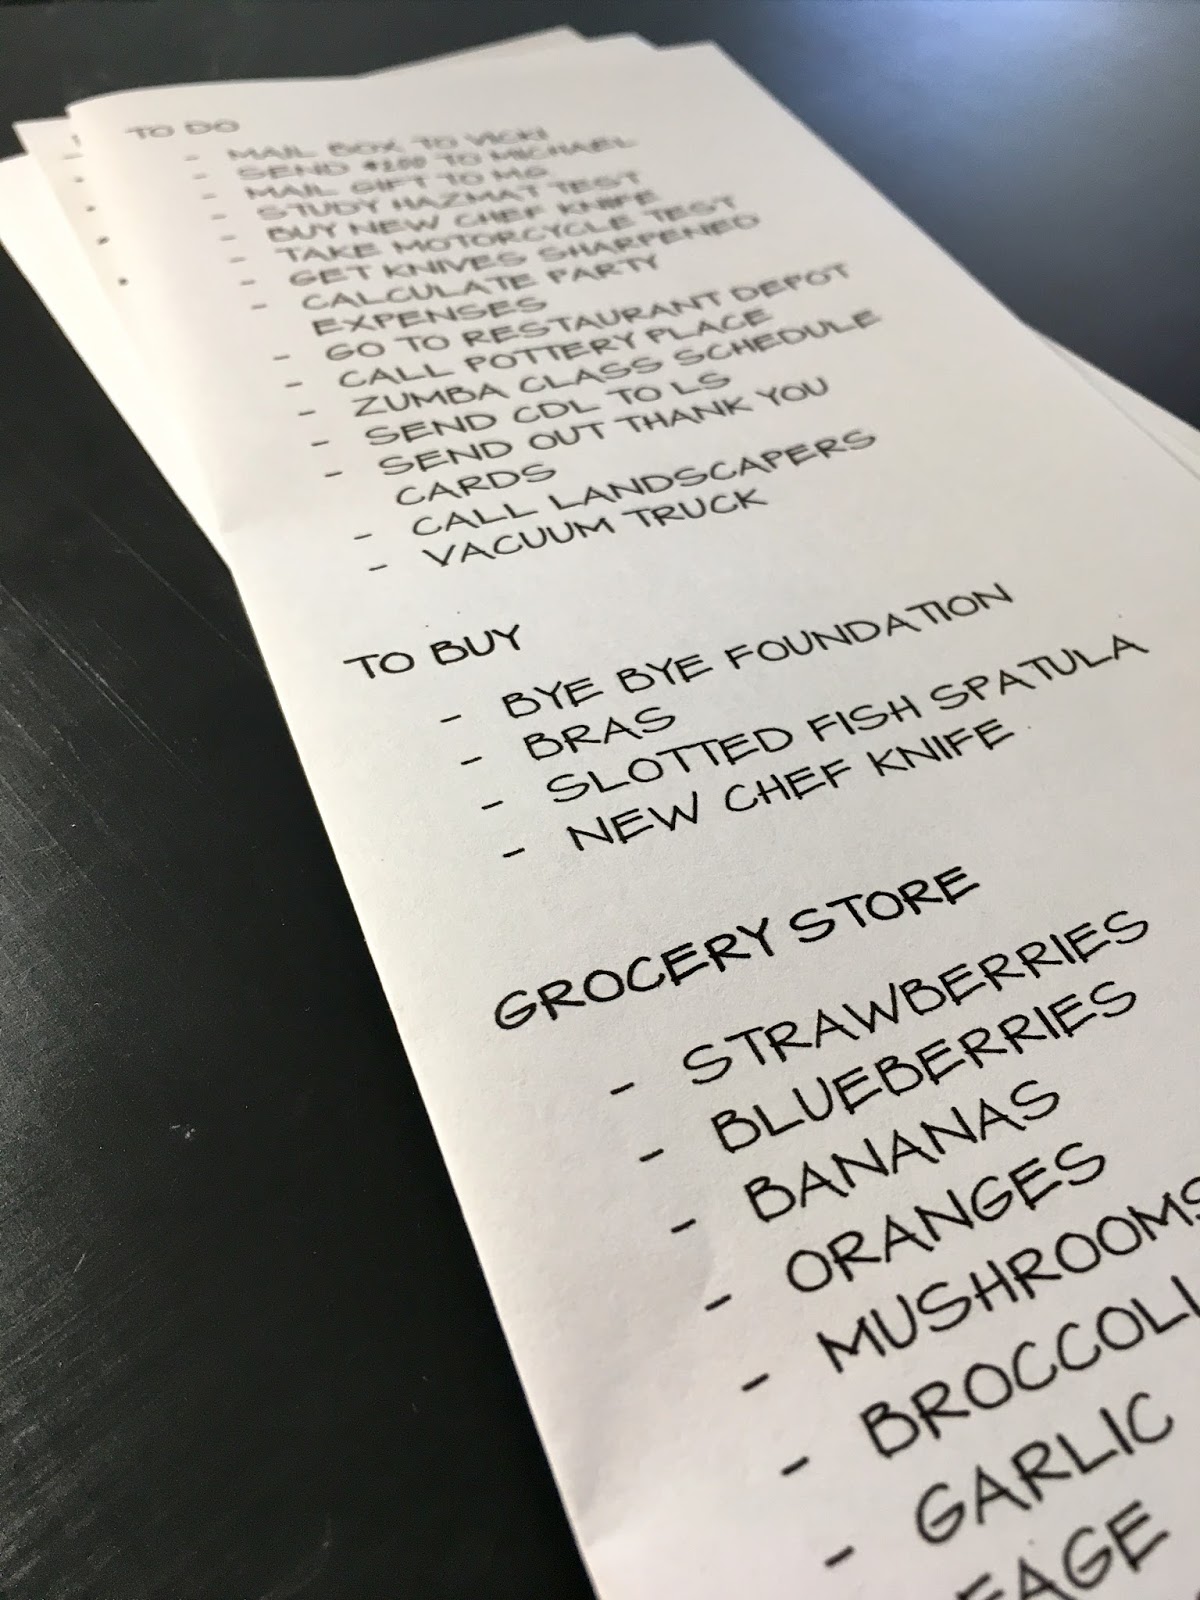 TO DO
- MAIL BOX TO VICKI
- SEND $200 TO MICHAEL
- MAIL GIFT TO MG
- STUDY HAZMAT TEST
- BUY NEW CHEF KNIFE
- TAKE MOTORCYCLE TEST
- GET KNIVES SHARPENED
- CALCULATE PARTY
EXPENSES
- GO TO RESTAURANT DEPOT
- CALL POTTERY PLACE
- ZUMBA CLASS SCHEDULE
- SEND CDL TO LS
- SEND OUT THANK YOU
CARDS
- CALL LANDSCAPERS
- VACUUM TRUCK
TO BUY
- BYE BYE FOUNDATION
- BRAS
- SLOTTED FISH SPATULA
- NEW CHEF KNIFE
GROCERY STORE
- STRAWBERRIES
- BLUEBERRIES
- BANANAS
- ORANGES
- MUSHROOMS
- BROCCOLI
- GARLIC